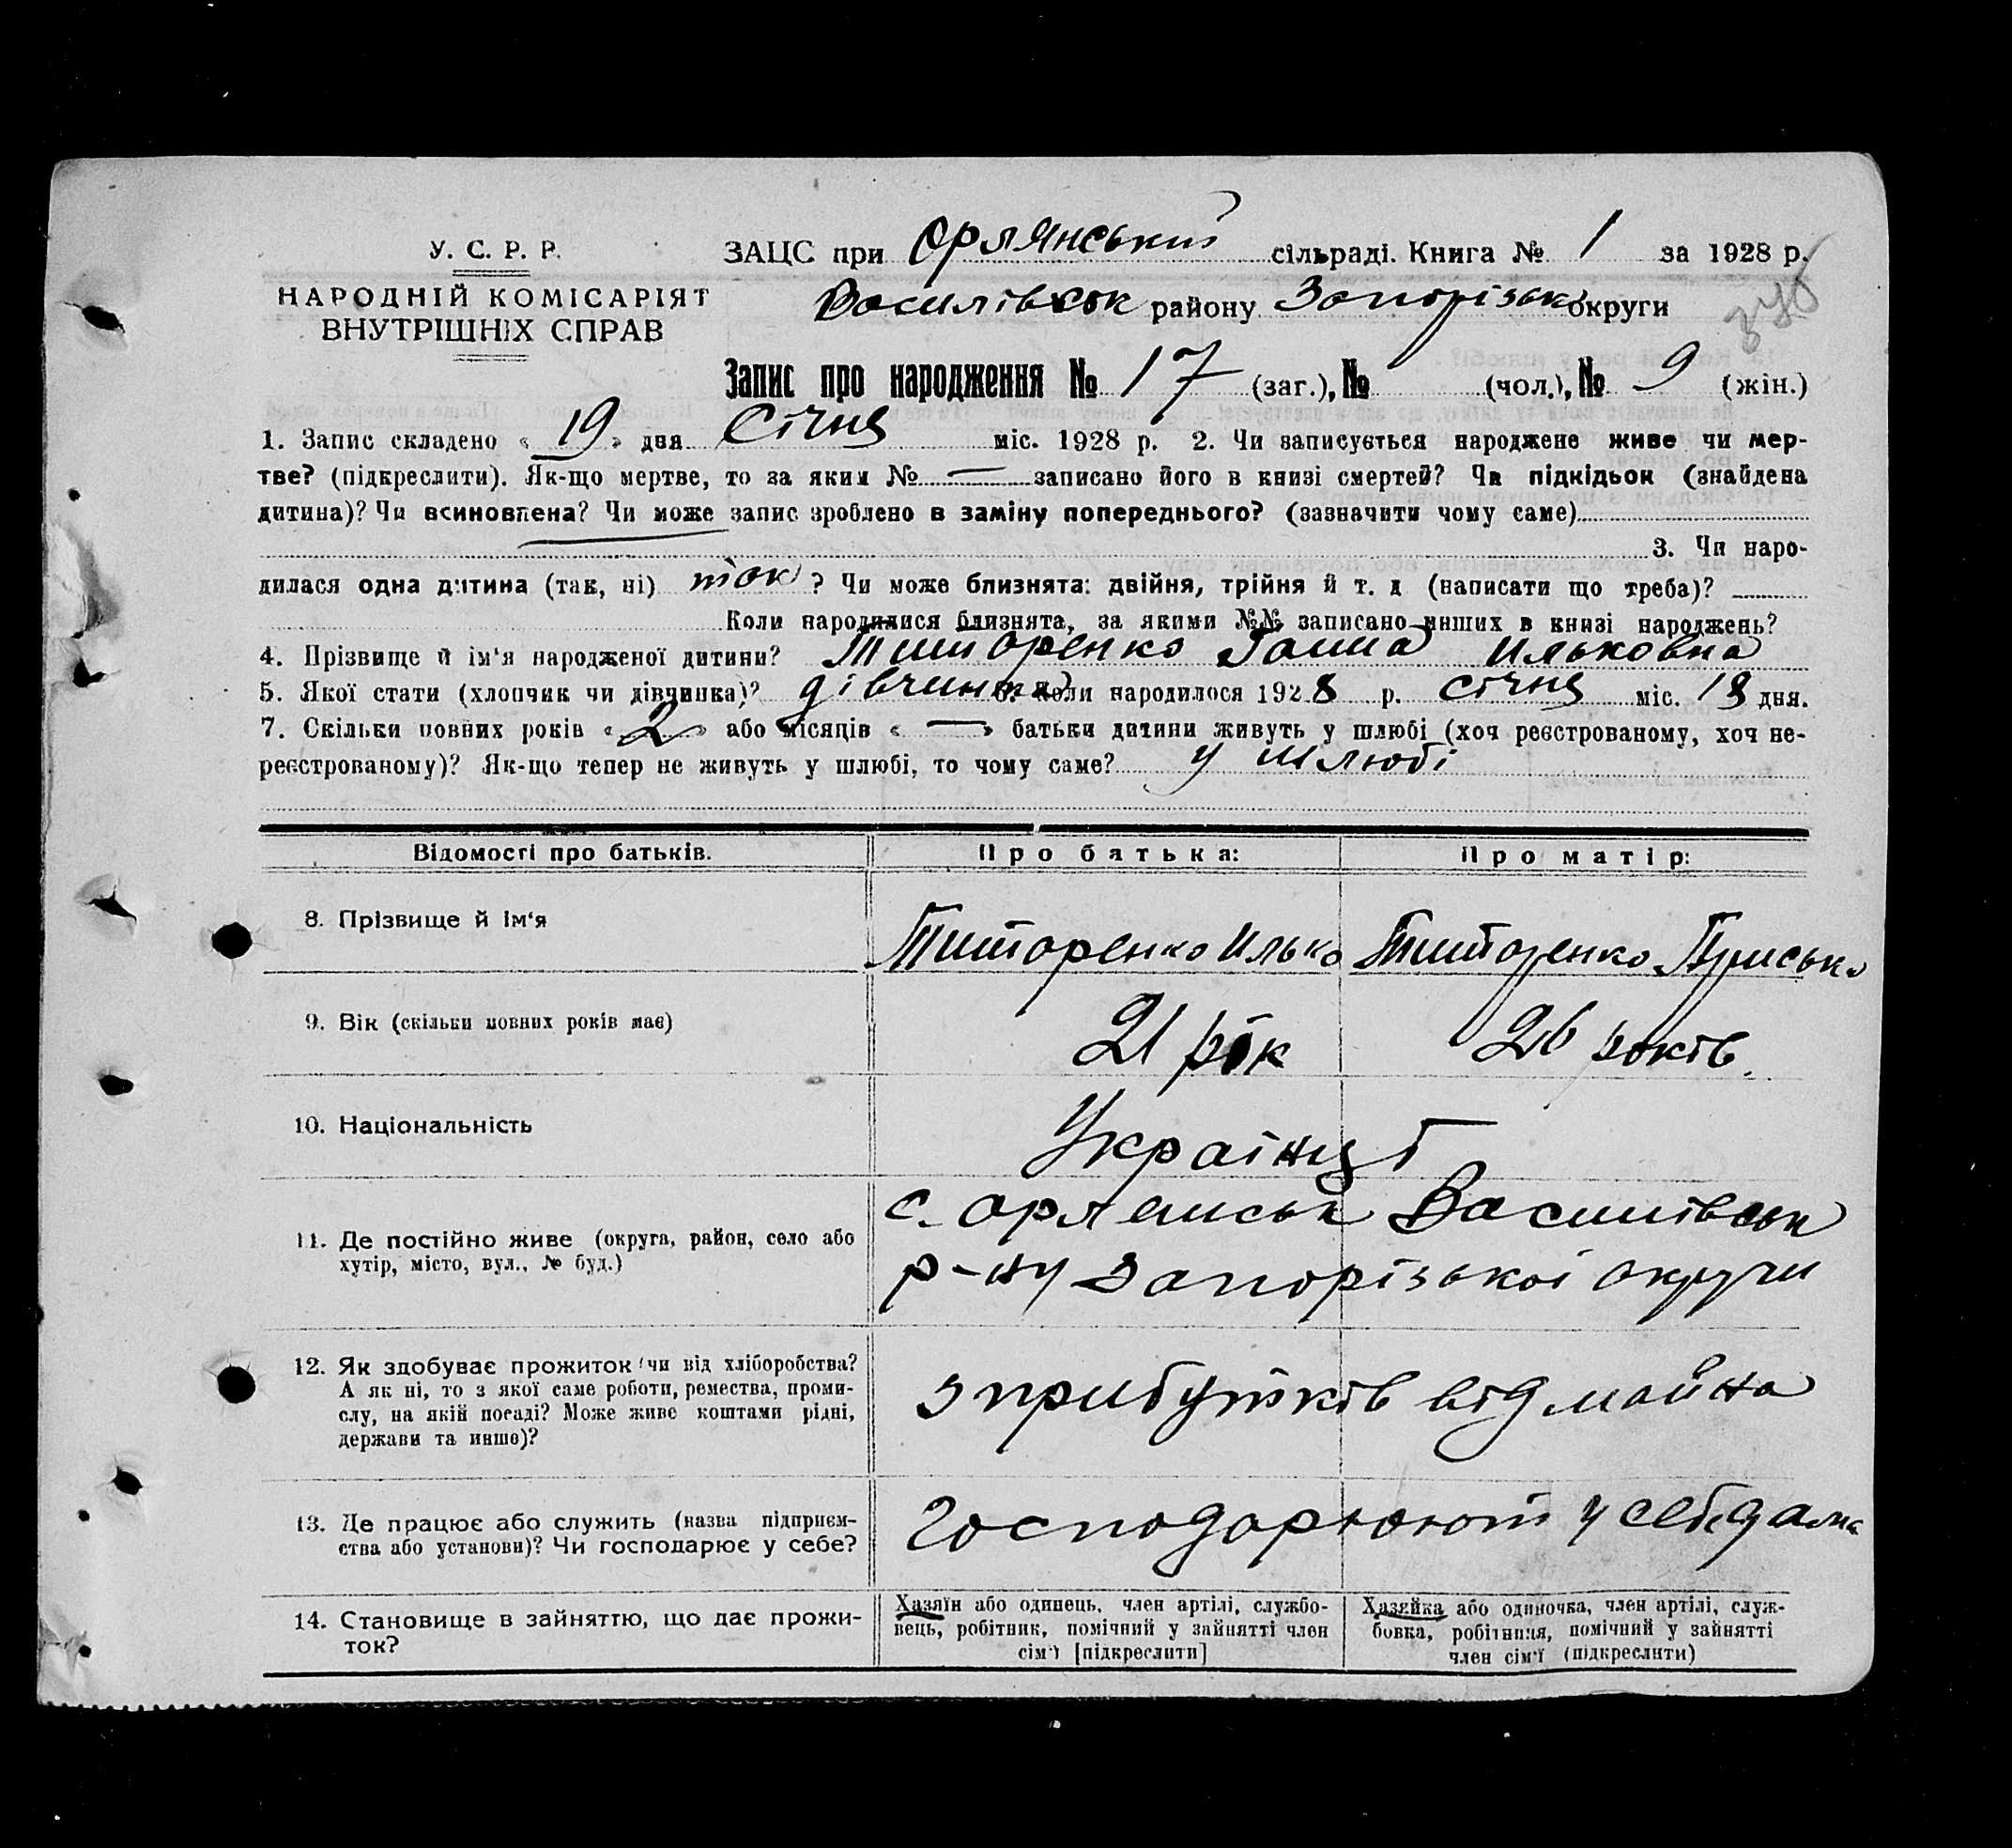 У. С. Р. Р.
НАРОДНІЙ КОМІСАРІЯТ
ВНУТРІШНІХ СПРАВ
ЗАЦС при Орлянський сільраді. Книга № 1 за 1928 р.
Василівськ району Запорізьк округи
Запис про народження № 17 (заг.), № (чол.), № 9 (жін.)
1. Запис складено « 19 » дня Січня міс. 1928 р. 2. Чи записується народжене живе чи мер-
тве? (підкреслити). Як-що мертве, то за яким № — записано його в книзі смертей? Чи підкідьок (знайдена
дитина)? Чи всиновлена? Чи може запис зроблено в заміну попереднього? (зазначити чому саме)
3. Чи наро-
дилася одна дитина (так, ні) так ? Чи може близнята: двійня, трійня й т. д (написати що треба)?
Коли народилися близнята, за якими №№ записано инших в книзі народжень?
4. Прізвище й ім'я народженої дитини? Титоренко Ганна Ильковна
5. Якої стати (хлопчик чи дівчинка)? дівчинка 6. Коли народилося 1928 р. січня міс. 18 дня.
7. Скільки повних років « 2 » або місяців « — » батьки дитини живуть у шлюбі (хоч реєстрованому, хоч не-
реєстрованому)? Як-що тепер не живуть у шлюбі, то чому саме? у шлюбі
Відомості про батьків. Про батька: Про матір:
8. Прізвище й ім'я Титоренко Илько Титоренко Присько
9. Вік (скільки повних років має) 21 рік 26 років.
10. Національність Українці
11. Де постійно живе (округа, район, село або
хутір, місто, вул., № буд.)
с. Орлянськ Василівськ
р-ну Запорізької округи
12. Як здобуває прожиток (чи від хліборобства?
А як ні, то з якої саме роботи, ремества, проми-
слу, на якій посаді? Може живе коштами рідні,
держави та инше)?
з прибутків від майна
13. Де працює або служить (назва підприєм-
ства або установи)? Чи господарює у себе?
Господарюют у себе дома
14. Становище в зайняттю, що дає прожи-
ток?
Хазяїн або одинець, член артілі, службо-
вець, робітник, помічний у зайнятті член
сім'ї [підкреслити]
Хазяйка або одиночка, член артілі, служ-
бовка, робітниця, помічний у зайнятті
член сім'ї (підкреслити)